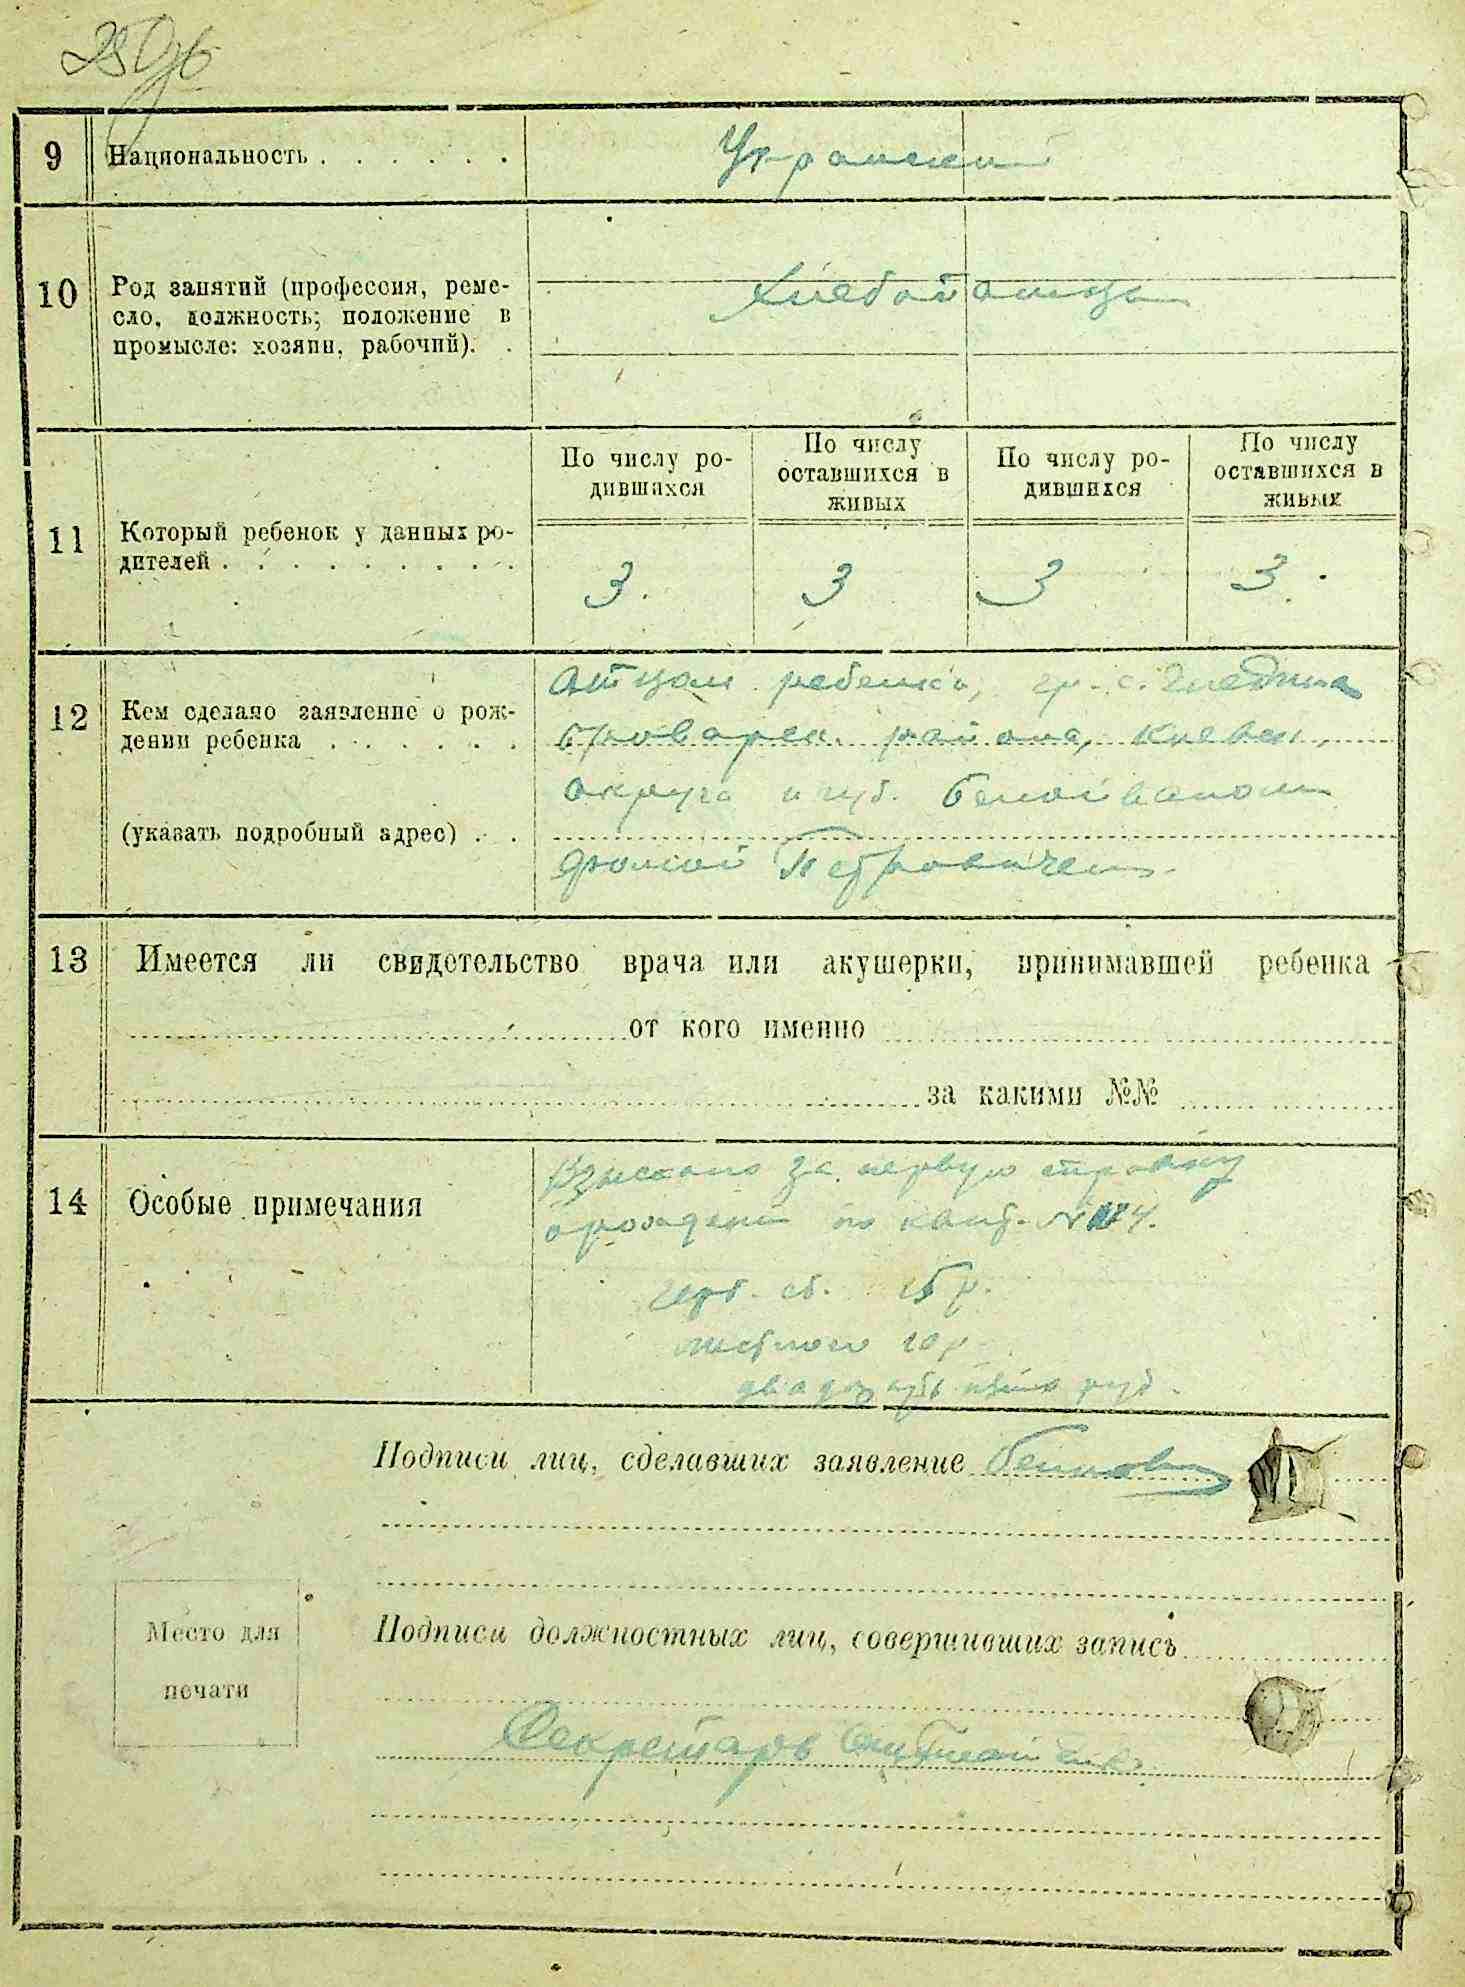 9 Национальность . . . . . . Украинский
10 Род занятий (профессия, реме-
сло, должность; положение в
промысле: хозяин, рабочий). .
Хлебопашцы
По числу ро-
дившихся
По числу
оставшихся в
живых
По числу ро-
дившихся
По числу
оставшихся в
живых
11 Который ребенок у данных ро-
дителей . . . . . . . . .
3. 3 3 3.
12 Кем сделано заявление о рож-
дении ребенка . . . . . .
(указать подробный адрес) . .
Отцом ребенка, гр. с. Гнедина
Броварск. района, Киевск.
округа и губ.
Фомой Петровичем.
13 Имеется ли свидетельство врача или акушерки, принимавшей ребенка
от кого именно
за какими №№
14 Особые примечания
Взыскано за первую справку
о рождени по квит. №
герб. сб. 15 р.
местного 10 р.
двадцать пять руб.
Подписи лиц, сделавших заявление
Место для
печати
Подписи должностных лиц, совершивших запись
Секретарь